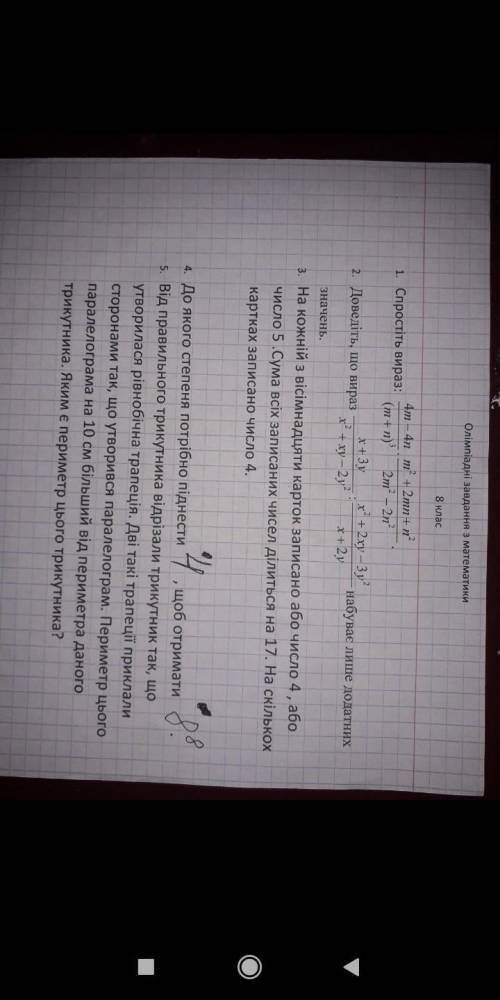 Олімпіадні завдання з математики
8 клас
1. Спростіть вираз: (4m − 4n)/(m + n)³ · (m² + 2mn + n²)/(2m² − 2n²).
2. Доведіть, що вираз (x + 3y)/(x² + xy − 2y²) : (x² + 2xy − 3y²)/(x + 2y) набуває лише додатних
значень.
3. На кожній з вісімнадцяти карток записано або число 4 , або
число 5 .Сума всіх записаних чисел ділиться на 17. На скількох
картках записано число 4.
4. До якого степеня потрібно піднести 4⁴ , щоб отримати 8⁸.
5. Від правильного трикутника відрізали трикутник так, що
утворилася рівнобічна трапеція. Дві такі трапеції приклали
сторонами так, що утворився паралелограм. Периметр цього
паралелограма на 10 см більший від периметра даного
трикутника. Яким є периметр цього трикутника?